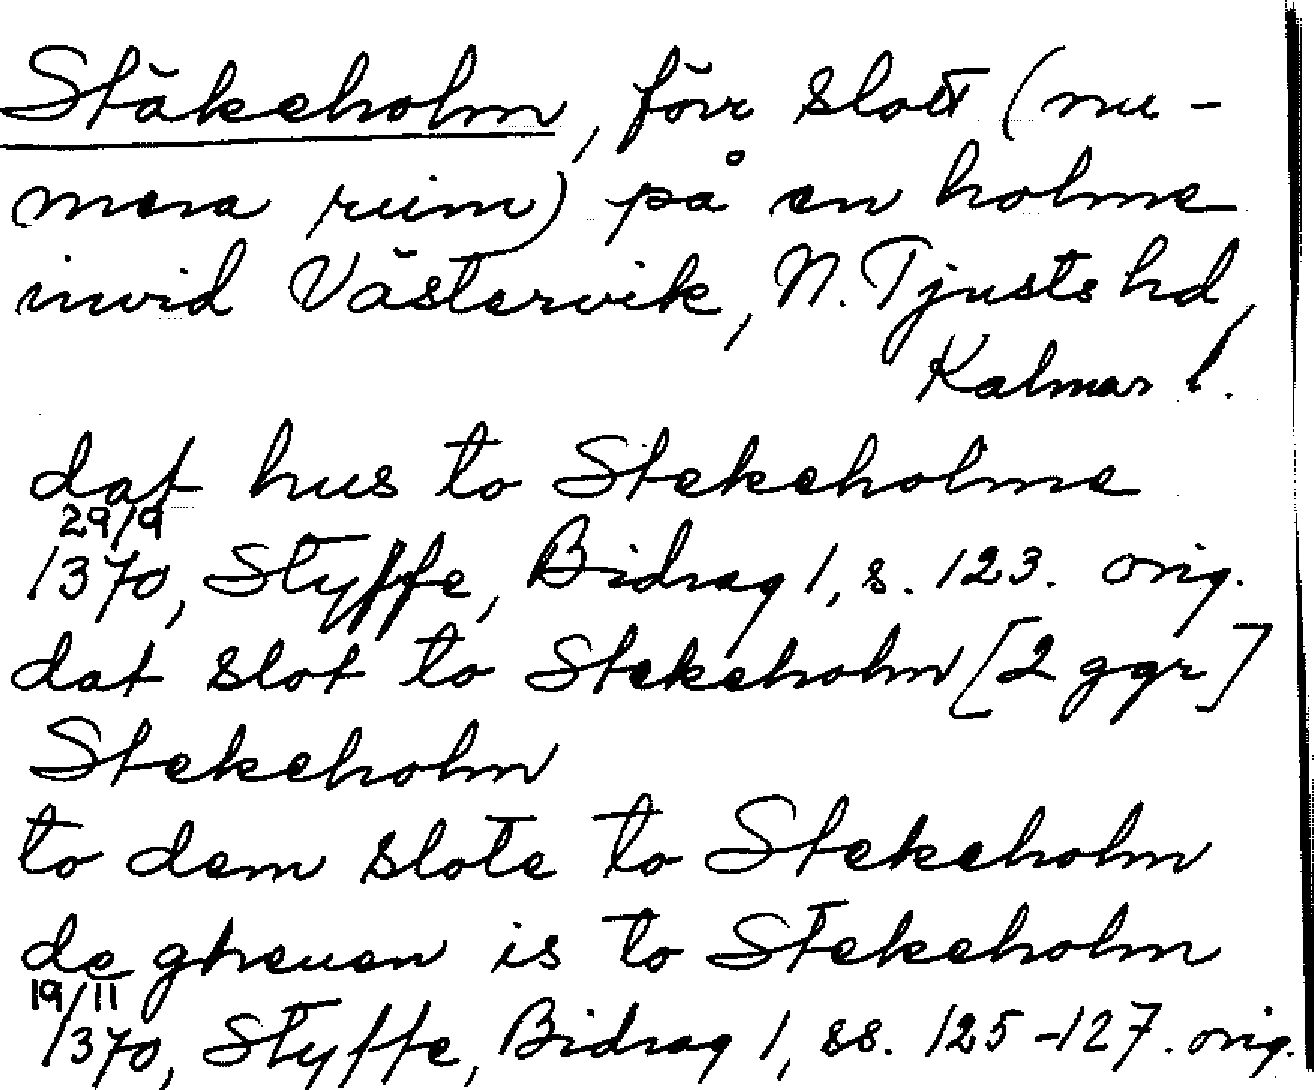 Stäkeholm, förr slott (nu-
mera ruin) på en holme
invid Västervik, N. Tjusts hd,
Kalmar l.
dat hus to Stekeholme
29/9
1370, Styffe, Bidrag 1, s. 123. orig.
dat slot to Stekeholm [2 ggr]
Stekeholm
to dem slote to Stekeholm
de gheuen is to Stekeholm
19/11
1370, Styffe, Bidrag 1, ss. 125-127. orig.